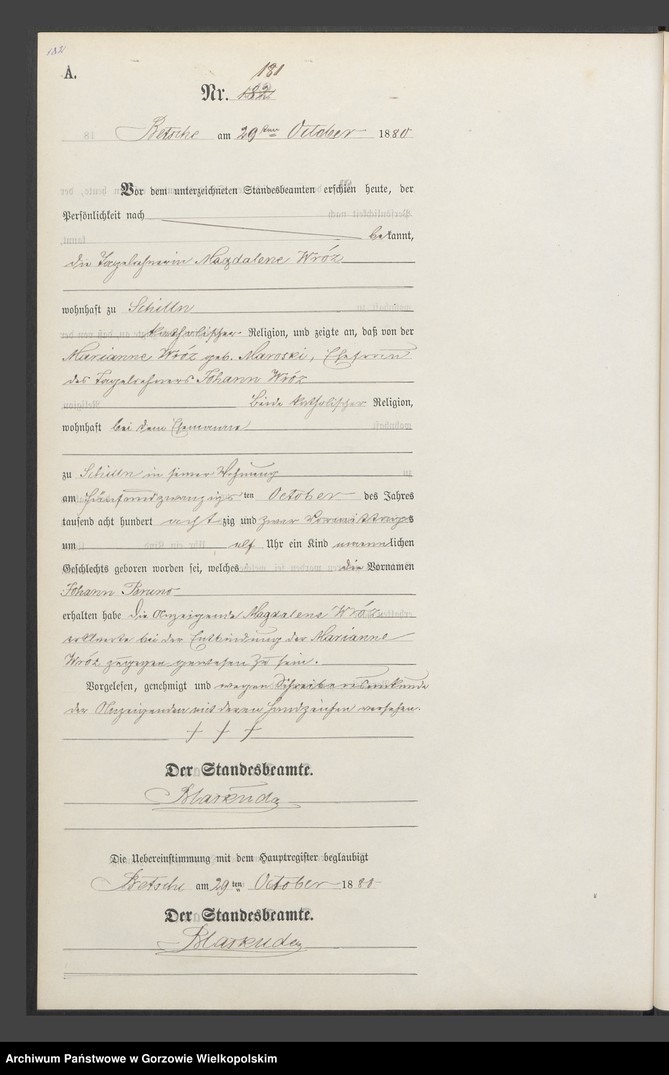 182
A.
181
Nr. 182
Betsche am 29ten October 1880
Vor dem unterzeichneten Standesbeamten erschien heute, der
Persönlichkeit nach
bekannt,
die Tagelöhnerin Magdalene Wróz
wohnhaft zu Schilln
katholischer Religion, und zeigte an, daß von der
Marianne Wróz geb. Maroski, Ehefrau
des Tagelöhners Johann Wróz
beide katholischer Religion,
wohnhaft bei dem Ehemanne
zu Schilln in seiner Wohnung
am fünfundzwanzigsten October des Jahres
tausend acht hundert achtzig und zwar Vormittags
um elf Uhr ein Kind männlichen
Geschlechts geboren worden sei, welches die Vornamen
Johann Bruno
erhalten habe die Anzeigende Magdalena Wróz
erklärte bei der Entbindung der Marianne
Wróz zugegen gewesen zu sein.
Vorgelesen, genehmigt und wegen Schreibensunkunde
der Anzeigenden mit deren Handzeichen versehen.
+ + +
Der Standesbeamte.
Die Uebereinstimmung mit dem Hauptregister beglaubigt
Betsche am 29ten October 1880
Der Standesbeamte.
Archiwum Państwowe w Gorzowie Wielkopolskim